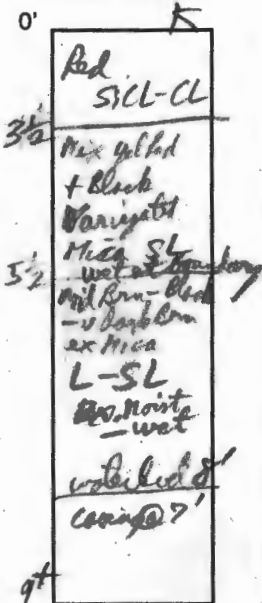 0' K
Red
SiCL-CL
3 1/2
Mix yel Red
+ Black
Variegated
Mica SL
wet at boundary
5 1/2
Brn - Black
- v Dark Brn
ex Mica
L-SL
v. Moist
- wet
8'
caving @ 7'
9+